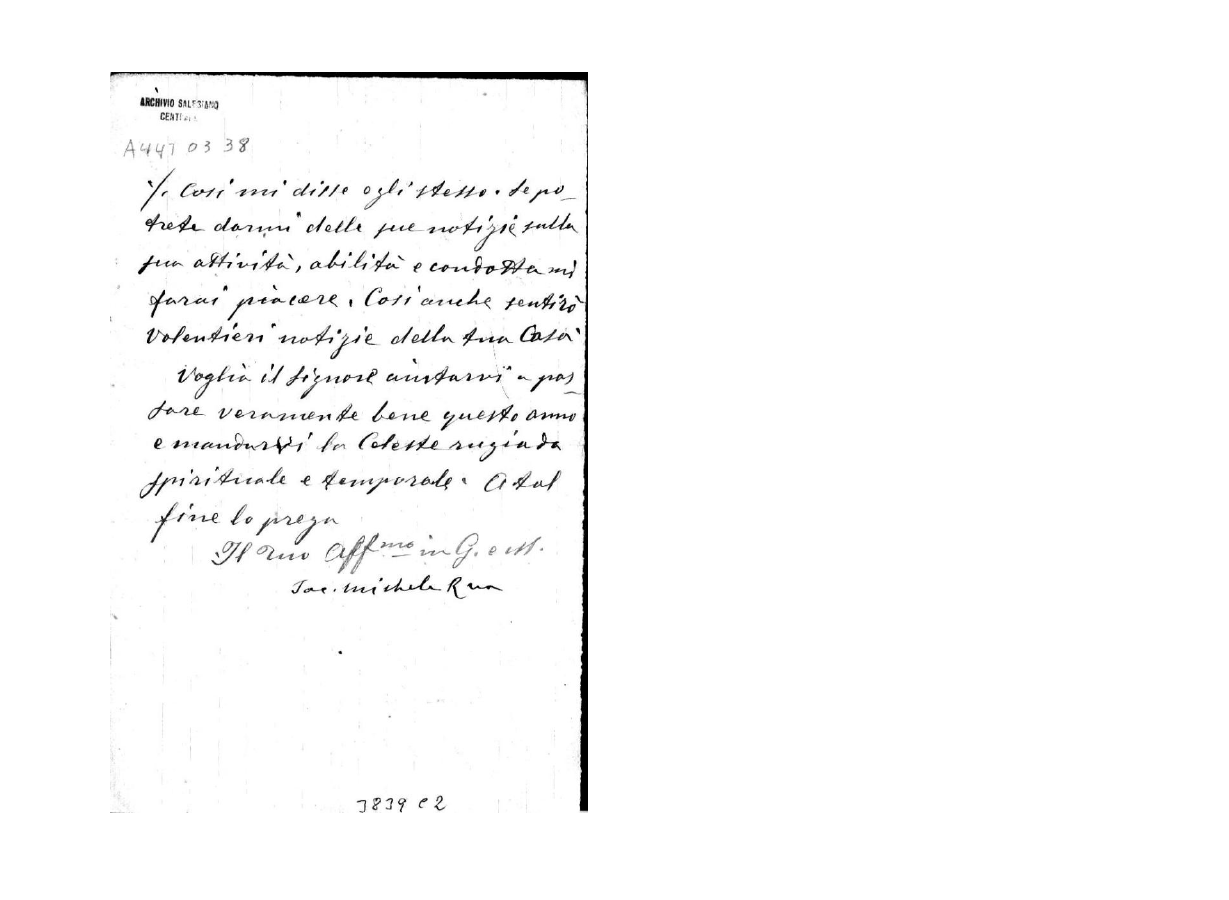 ARCHIVIO SALESIANO
CENTRALE
A447 03 38
./. Così mi disse egli stesso. Se po_
trete darmi delle sue notizie sulla
sua attività, abilità e condotta mi
farai piacere. Così anche sentirò
volentieri notizie della tua Casa
Voglia il Signore aiutarvi a pas_
sare veramente bene questo anno
e mandarvi la Celeste rugiada
spirituale e temporale. A tal
fine lo prega
Il tuo Affmo in G. e M.
Sac. Michele Rua
3839 C2